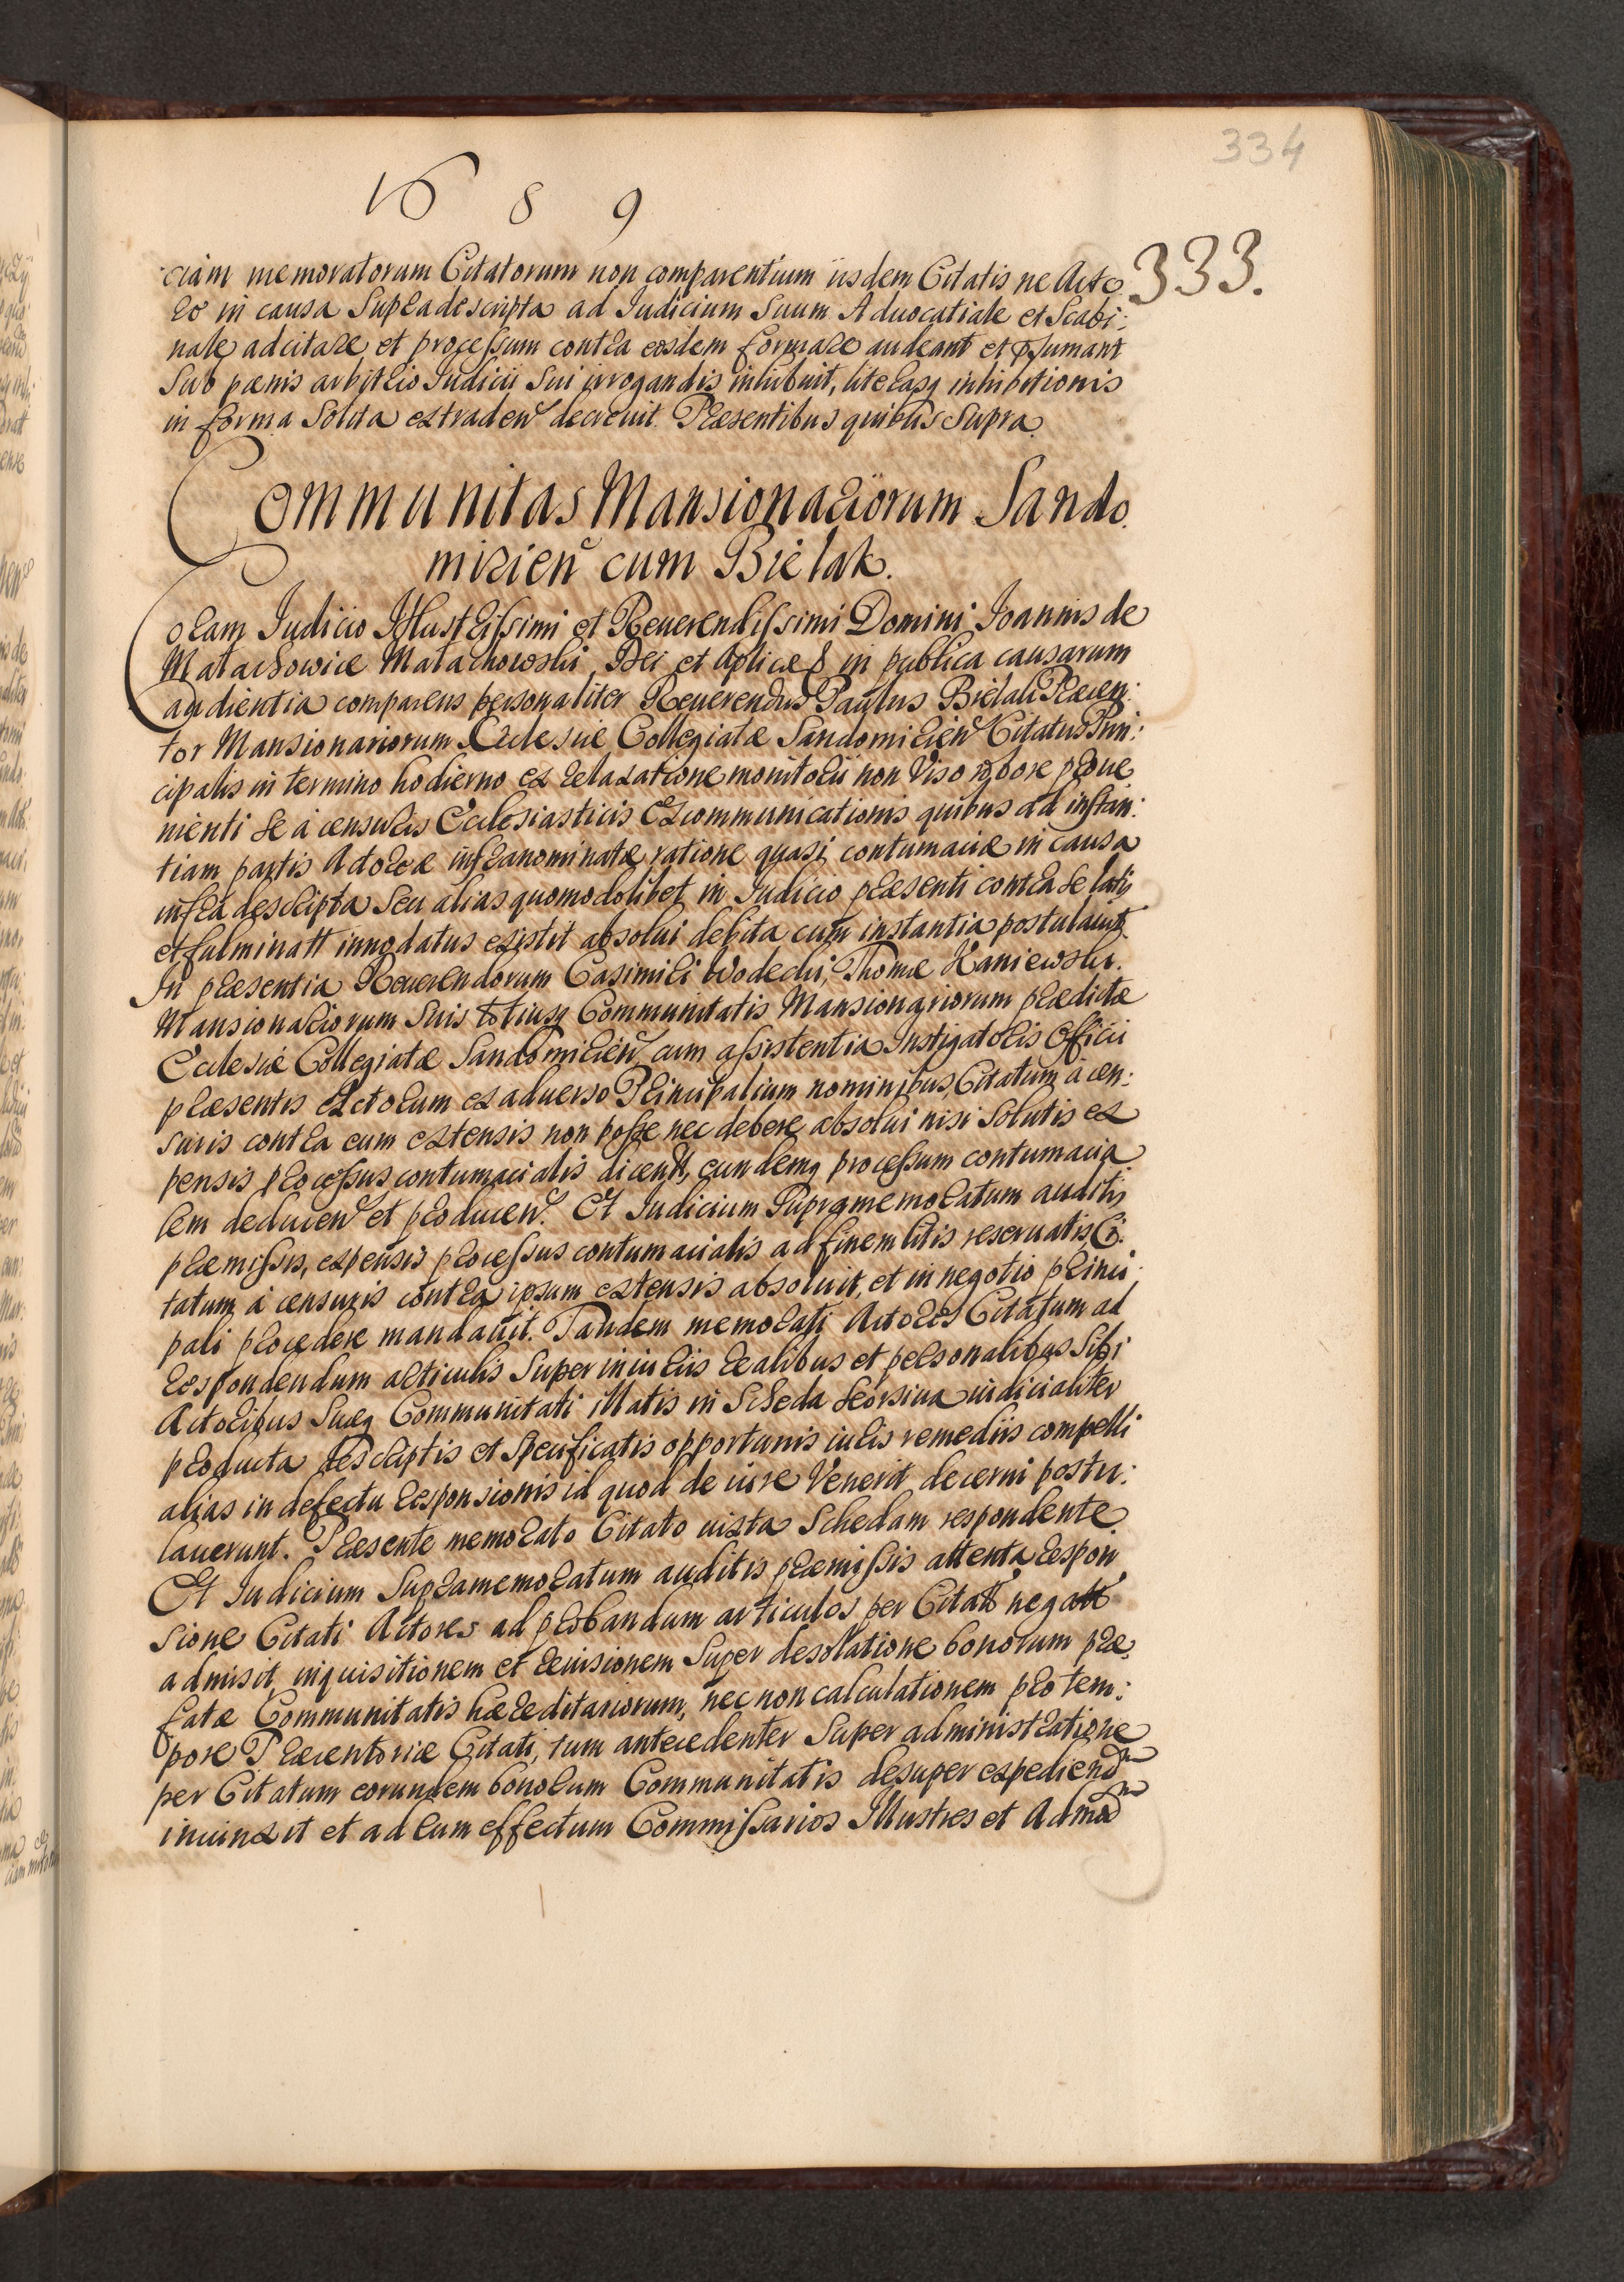 334
1689
333.
ciam memoratorum Citatorum non comparentium iisdem Citatis ne Acto
re in causa Supradescripta ad Iudicium Suum Aduocatiale et Scabi:
nale adcitare et processum contra eosdem formare audeant et pr̄sumant
Sub pœnis arbitrio Iudicii Sui irrogandis inhibuit, literasq inhibitionis
in forma Solita extraden̄ decreuit. Præsentibus quibus Supra.
Communitas Mansionariorum Sando
mirien̄ cum Bielak.
Coram Iudicio Illustrissimi et Reuerendissimi Domini Ioannis de
Małachowice Małachowski Dei et Aplicæ in publica causarum
audientia comparens personaliter Reuerendus Paulus Bielak Præcen:
tor Mansionariorum Ecclesiæ Collegiatæ Sandomirien̄ Citatus Prin:
cipalis in termino hodierno ex relaxatione monitorii non Viso robore proue
nienti se à censuris Ecclesiasticis Excommunicationis quibus ad instan:
tiam partis Actoreæ infranominatæ ratione quasi contumaciæ in causa
infra descripta Seu alias quomodolibet in Iudicio præsenti contra Se latis
et fulminatt innodatus existit absolui debita cum instantia postulauit.
In præsentia Reuerendorum Casimiri Wodecki, Thomæ Kaniewski.
Mansionariorum Suis totiusq Communitatis Mansionariorum prædictæ
Ecclesiæ Collegiatæ Sandomirien̄ cum assistentia Instigatoris Officii
præsentis Actorum ex aduerso Principalium nominibus, Citatum à cen:
suris contra eum extensis non posse nec debere absolui nisi Solutis ex
pensis processus contumacialis dicentt, eundemq processum contumacia
lem deducen̄ et producen̄. Et Iudicium Supramemoratum auditis
præmissis, expensis processus contumacialis ad finem litis reseruatis Ci:
tatum à censuris contra ipsum extensis absoluit, et in negotio princi:
pali procedere mandauit. Tandem memorati Actores Citatum ad
respondendum articulis Super iniuriis realibus et personalibus Sibi
Actoribus Suæq Communitati illatis in Scheda seorsiua iudicialiter
producta descriptis et Specificatis opportunis iuris remediis compelli
alias in defectu responsionis id quod de iure Venerit decerni postu:
lauerunt. Præsente memorato Citato iuxta Schedam respondente.
Et Iudicium Supramemoratum auditis præmissis attenta respon
sione Citati Actores ad probandum articulos per Citatt negatt
admisit, inquisitionem et reuisionem Super desolatione bonorum præ
fatæ Communitatis hæreditariorum, nec non calculationem pro tem:
pore Præcentoriæ Citati, tum antecedenter Super administratione
per Citatum eorundem bonorum Communitatis desuper expediend̄
iniunxit et ad eum effectum Commissarios Illustres et Admod̄